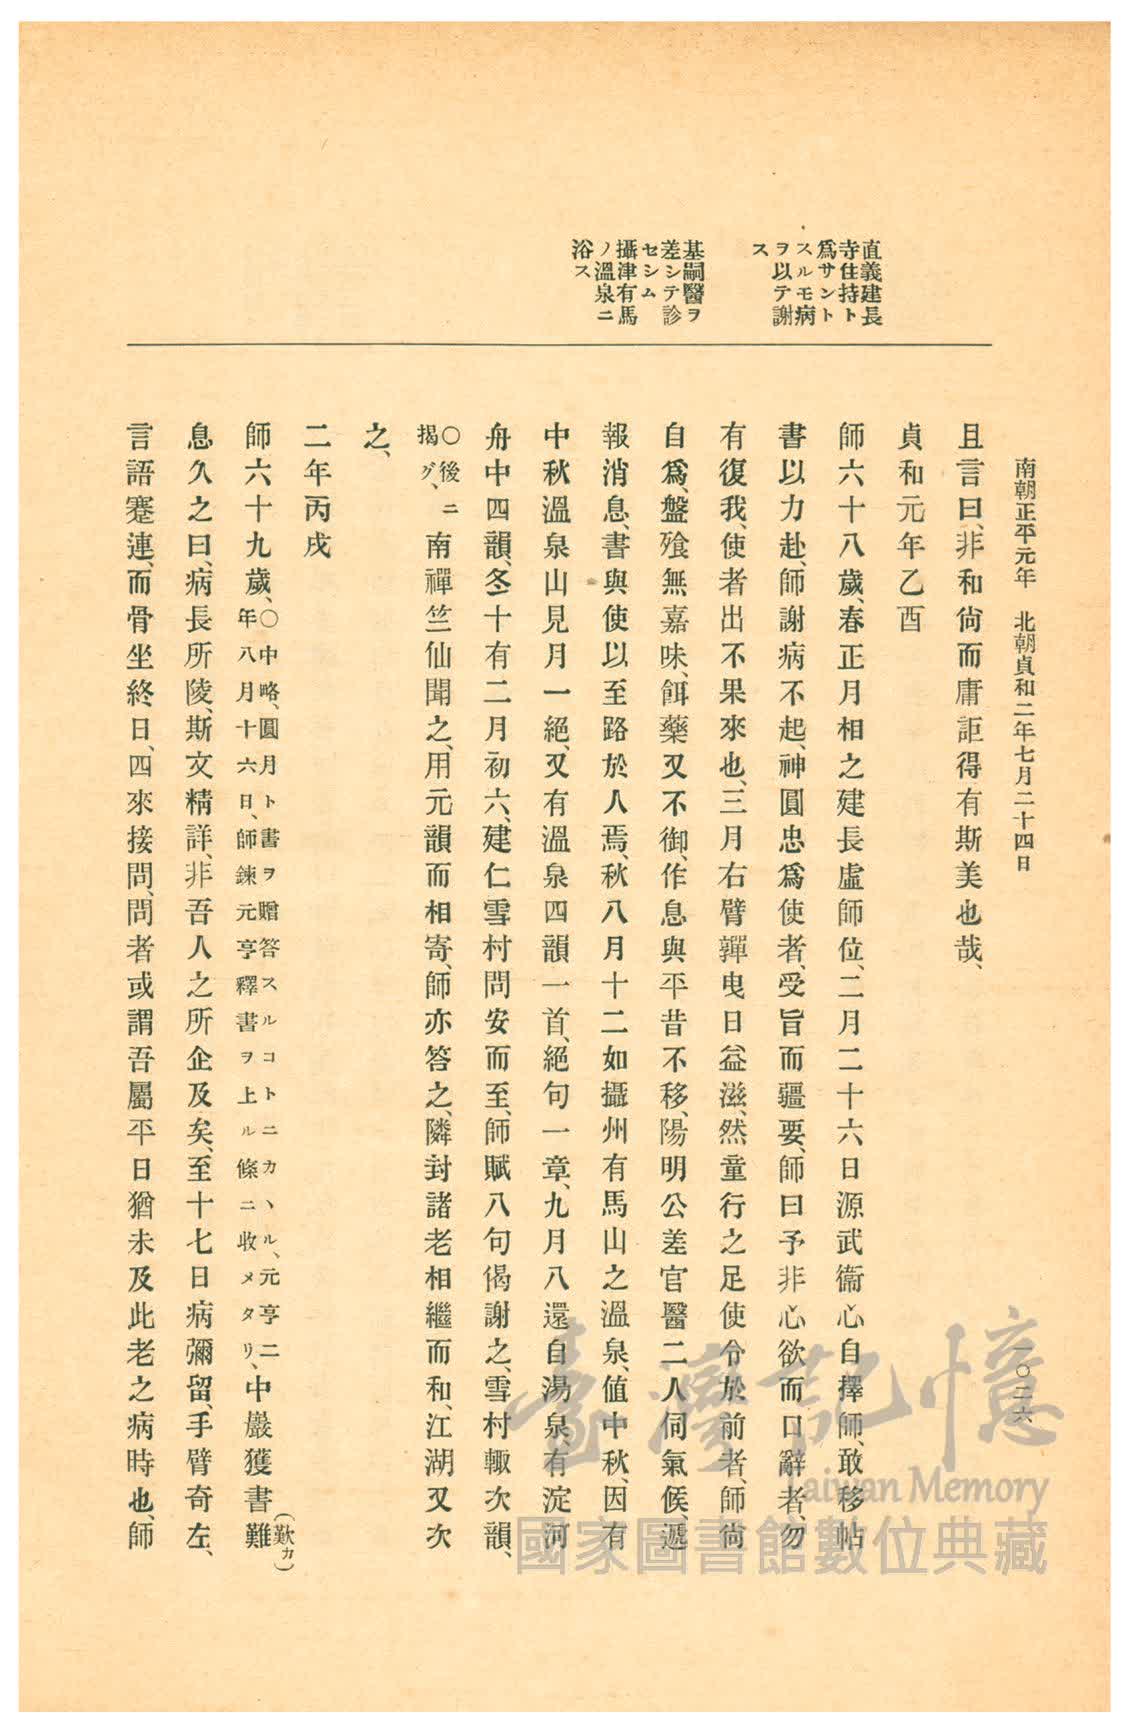 南朝正平元年　北朝貞和二年七月二十四日
一〇二六
直義建長
寺住持ト
爲サント
スルモ病
ヲ以テ謝
ス
基嗣醫ヲ
差シテ診
セシム
攝津有馬
ノ溫泉ニ
浴ス
且言曰、非和尙而庸詎得有斯美也哉、
貞和元年乙酉
師六十八歲、春正月相之建長虛師位、二月二十六日源武衞心自擇師、敢移帖
書以力赴、師謝病不起、神圓忠爲使者、受旨而疆要、師曰予非心欲而口辭者、勿
有復我、使者出不果來也、三月右臂嚲曳日益滋、然童行之足使令於前者、師尙
自爲、盤飡無嘉味、餌藥又不御、作息與平昔不移、陽明公差官醫二人伺氣候、遞
報消息、書與使以至路於人焉、秋八月十二如攝州有馬山之溫泉、値中秋、因有
中秋溫泉山見月一絕、又有溫泉四韻一首、絕句一章、九月八還自湯泉、有淀河
舟中四韻、冬十有二月初六、建仁雪村問安而至、師賦八句偈謝之、雪村輙次韻、
〇後ニ
揭グ、
南禪竺仙聞之、用元韻而相寄、師亦答之、隣封諸老相繼而和、江湖又次
之、
二年丙戌
師六十九歲、
〇中略、圓月ト書ヲ贈答スルコトニカヽル、元亨二
年八月十六日、師鍊元亨釋書ヲ上ル條ニ收メタリ、
中巖獲書難
(歎カ)
息久之曰、病長所陵、斯文精詳、非吾人之所企及矣、至十七日病彌留、手臂奇左、
言語蹇連、而骨坐終日、四來接問、問者或謂吾屬平日猶未及此老之病時也、師
臺灣記憶
Taiwan Memory
國家圖書館數位典藏